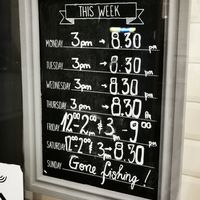 THIS WEEK
MONDAY 3pm → 8.30 pm
TUESDAY 3pm → 8.30 pm
WEDNESDAY 3pm → 8.30 pm
THURSDAY 3pm → 8.30 pm
FRIDAY 12-2 & 3 - 9:00
SATURDAY 12-2 & 3 - 8.30 pm
SUNDAY Gone fishing!